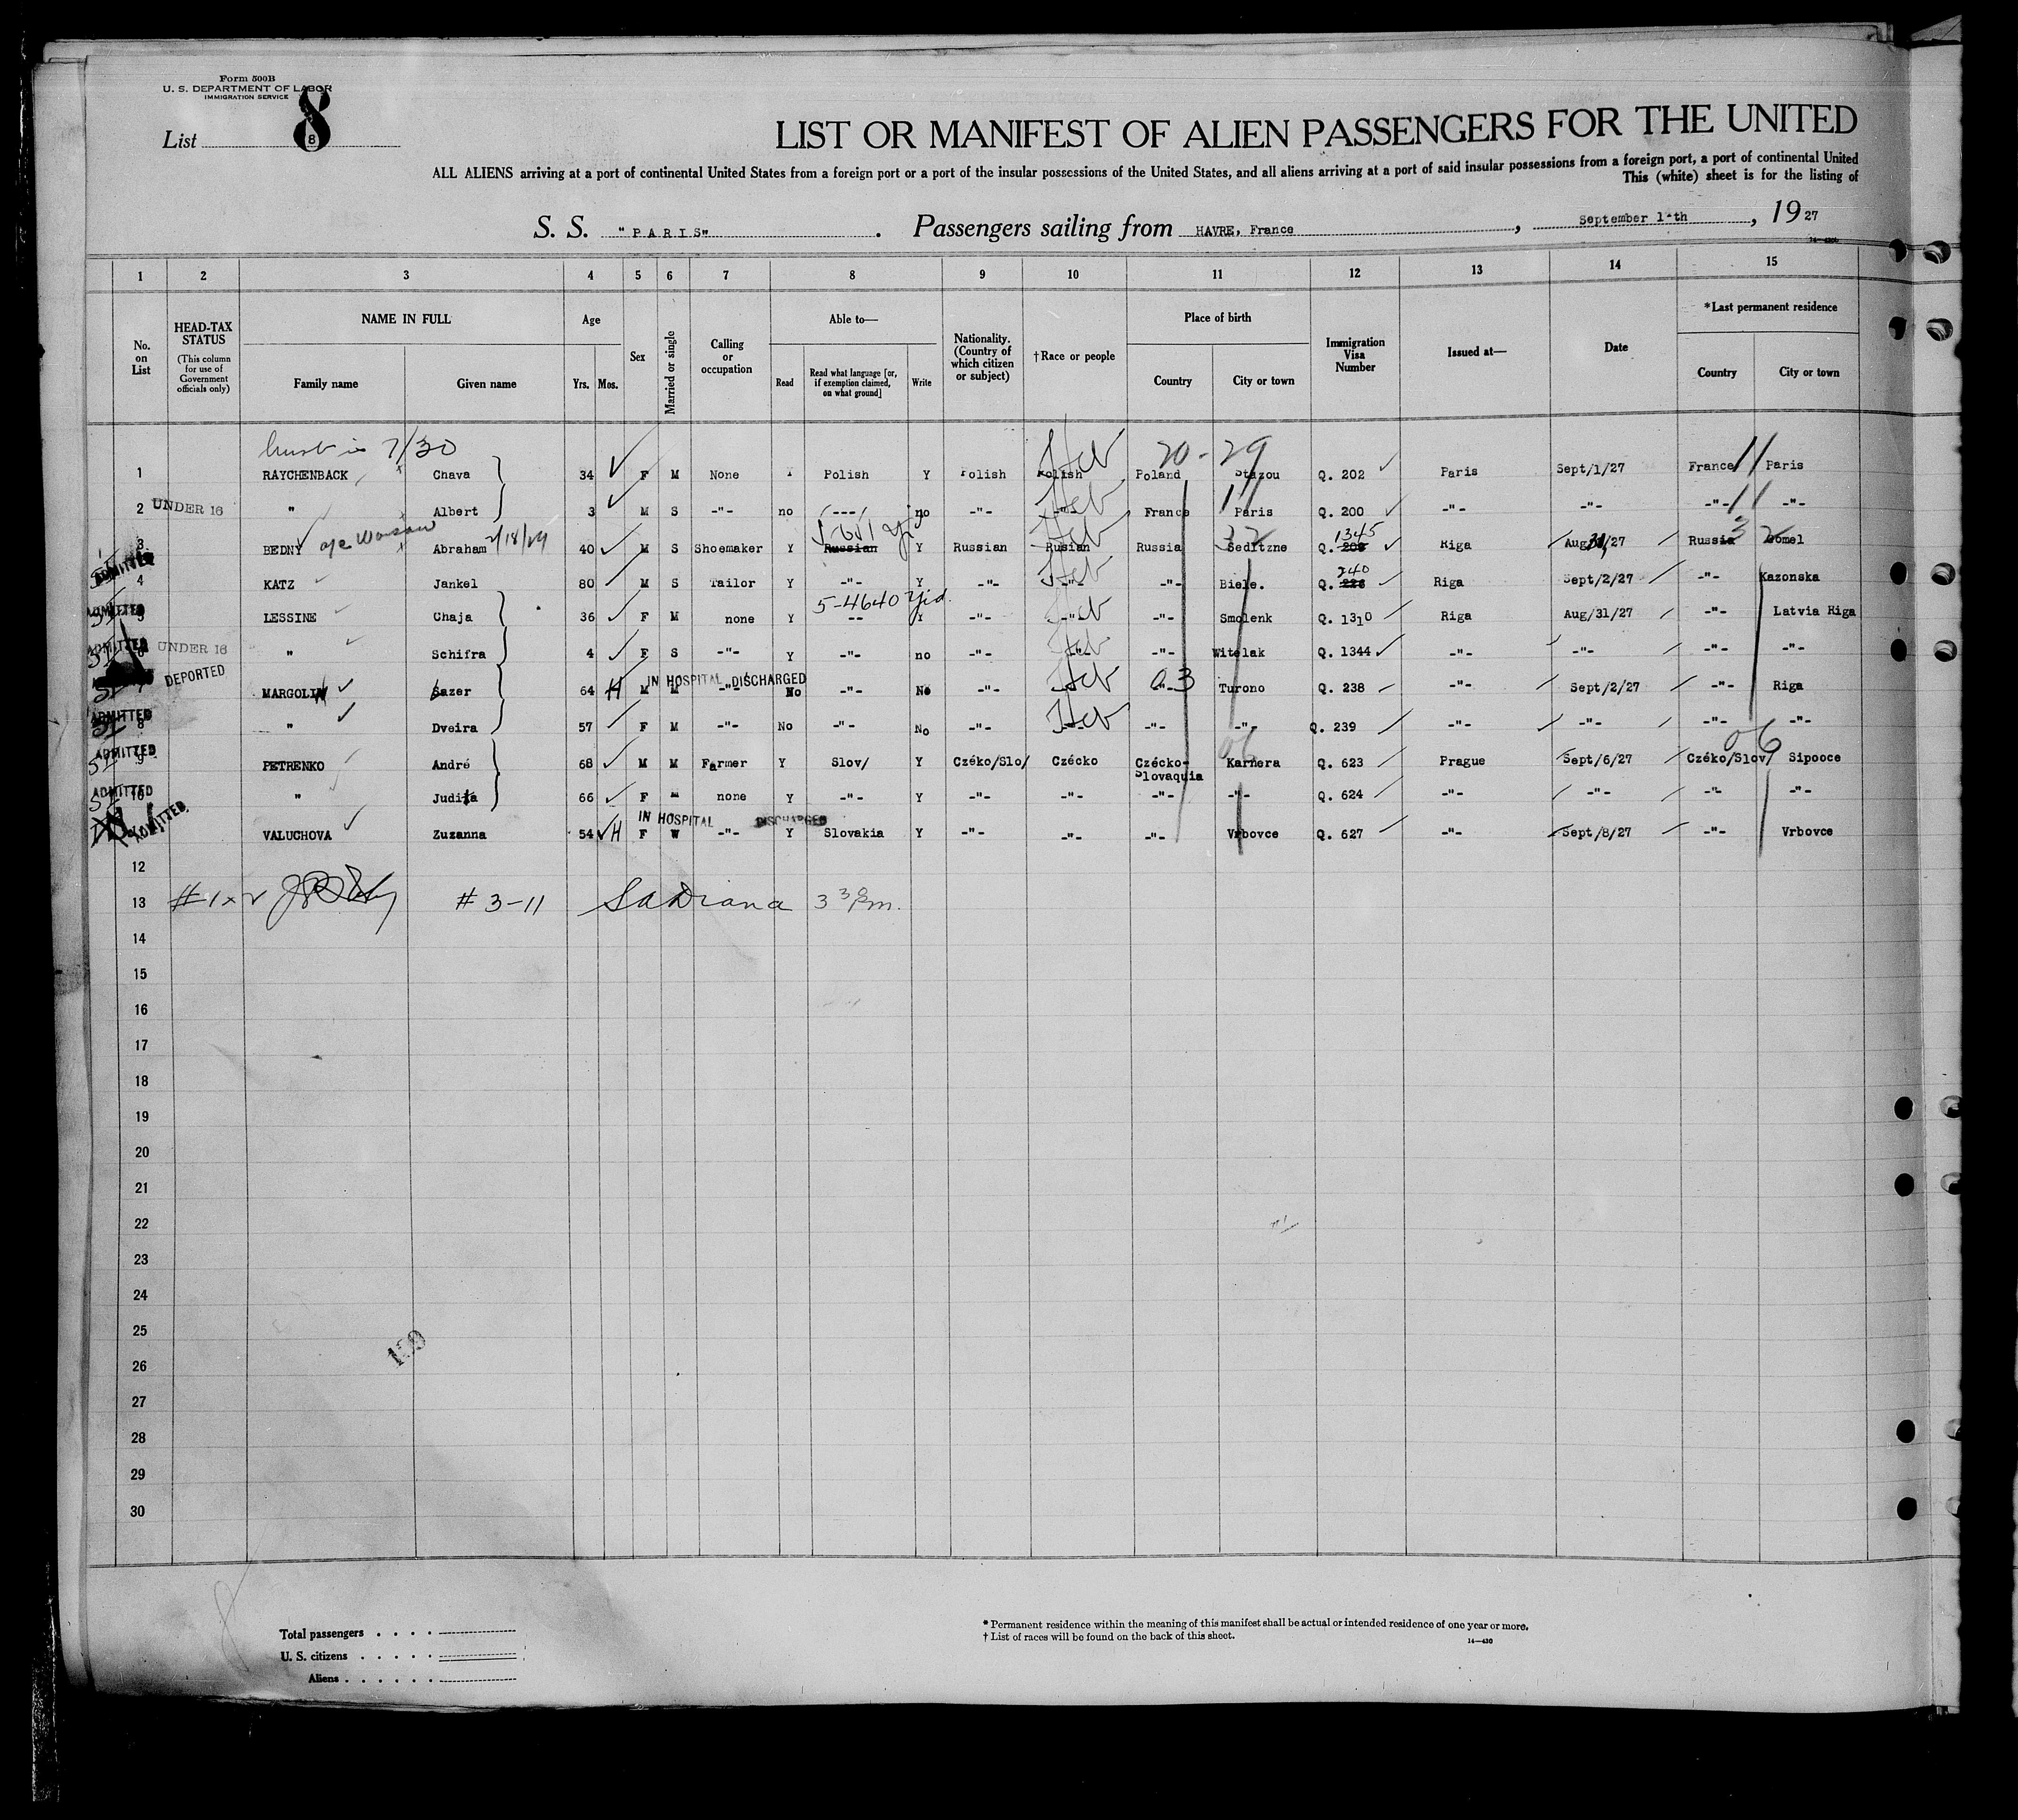 Form 500B
U. S. DEPARTMENT OF LABOR
IMMIGRATION SERVICE
List 8
8
LIST OR MANIFEST OF ALIEN PASSENGERS FOR THE UNITED
ALL ALIENS arriving at a port of continental United States from a foreign port or a port of the insular possessions of the United States, and all aliens arriving at a port of said insular possessions from a foreign port, a port of continental United
This (white) sheet is for the listing of
S. S. "PARIS". Passengers sailing from HAVRE, France, September 1th, 1927
1 2 3 4 5 6 7 8 9 10 11 12 13 14 15
No. on List
HEAD-TAX STATUS (This column for use of Government officials only)
NAME IN FULL
Family name Given name
Age
Yrs. Mos.
Sex
Married or single
Calling or occupation
Able to—
Read
Read what language [or, if exemption claimed, on what ground]
Write
Nationality. (Country of which citizen or subject)
†Race or people
Place of birth
Country City or town
Immigration Visa Number
Issued at—
Date
*Last permanent residence
Country City or town
7/30 20-29
1 RAYCHENBACK Chava 34 F M None Polish Y Polish Polish Heb Poland Q. 202 Paris Sept/1/27 France 11 Paris
2 UNDER 16 " Albert 3 M S -"- no --- no -"- -"- Heb France 11 Paris Q. 200 -"- -"- -"- 11 -"-
3 BEDNY Abraham 40 M S Shoemaker Y Russian Y Russian Rusian Heb Russia 32 Seditzne Q. 1345 Riga Aug/31/27 Russia 32 Gomel
ADMITTED
4 KATZ Jankel 80 M S Tailor Y -"- Y -"- -"- Heb -"- Biele. Q. 240 Riga Sept/2/27 -"- Kazonska
ADMITTED 5 LESSINE Chaja 36 F M none Y 5-4640 Yid. -- Y -"- -"- Heb -"- Smolenk Q. 1310 Riga Aug/31/27 -"- Latvia Riga
ADMITTED 6 UNDER 16 " Schifra 4 F S -"- Y -"- no -"- -"- Heb Witelak Q. 1344 -"- -"- -"- -"-
7 DEPORTED MARGOLIN Lazer 64 H M M IN HOSPITAL DISCHARGED -"- No -"- No -"- Heb -"- 03 Turono Q. 238 -"- Sept/2/27 -"- Riga
ADMITTED 8 " Dveira 57 F M -"- No -"- No -"- Heb -"- -"- Q. 239 -"- -"- -"- -"-
ADMITTED 9 PETRENKO André 68 M M Farmer Y Slov/ Y Czéko/Slo/ Czécko Czécko-Slovaquia 06 Karnera Q. 623 Prague Sept/6/27 Czéko/Slov/ 06 Sipooce
ADMITTED 10 " Judita 66 F " none Y -"- Y -"- -"- -"- -"- Q. 624 -"- -"- -"- -"-
ADMITTED VALUCHOVA Zuzanna 54 H F W IN HOSPITAL DISCHARGED -"- Y Slovakia Y -"- -"- -"- Vrbovce Q. 627 -"- Sept/8/27 -"- Vrbovce
12
13 # 3-11
14
15
16
17
18
19
20
21
22
23
24
25
26
27
28
29
30
Total passengers
U. S. citizens
Aliens
* Permanent residence within the meaning of this manifest shall be actual or intended residence of one year or more.
† List of races will be found on the back of this sheet.
14—430